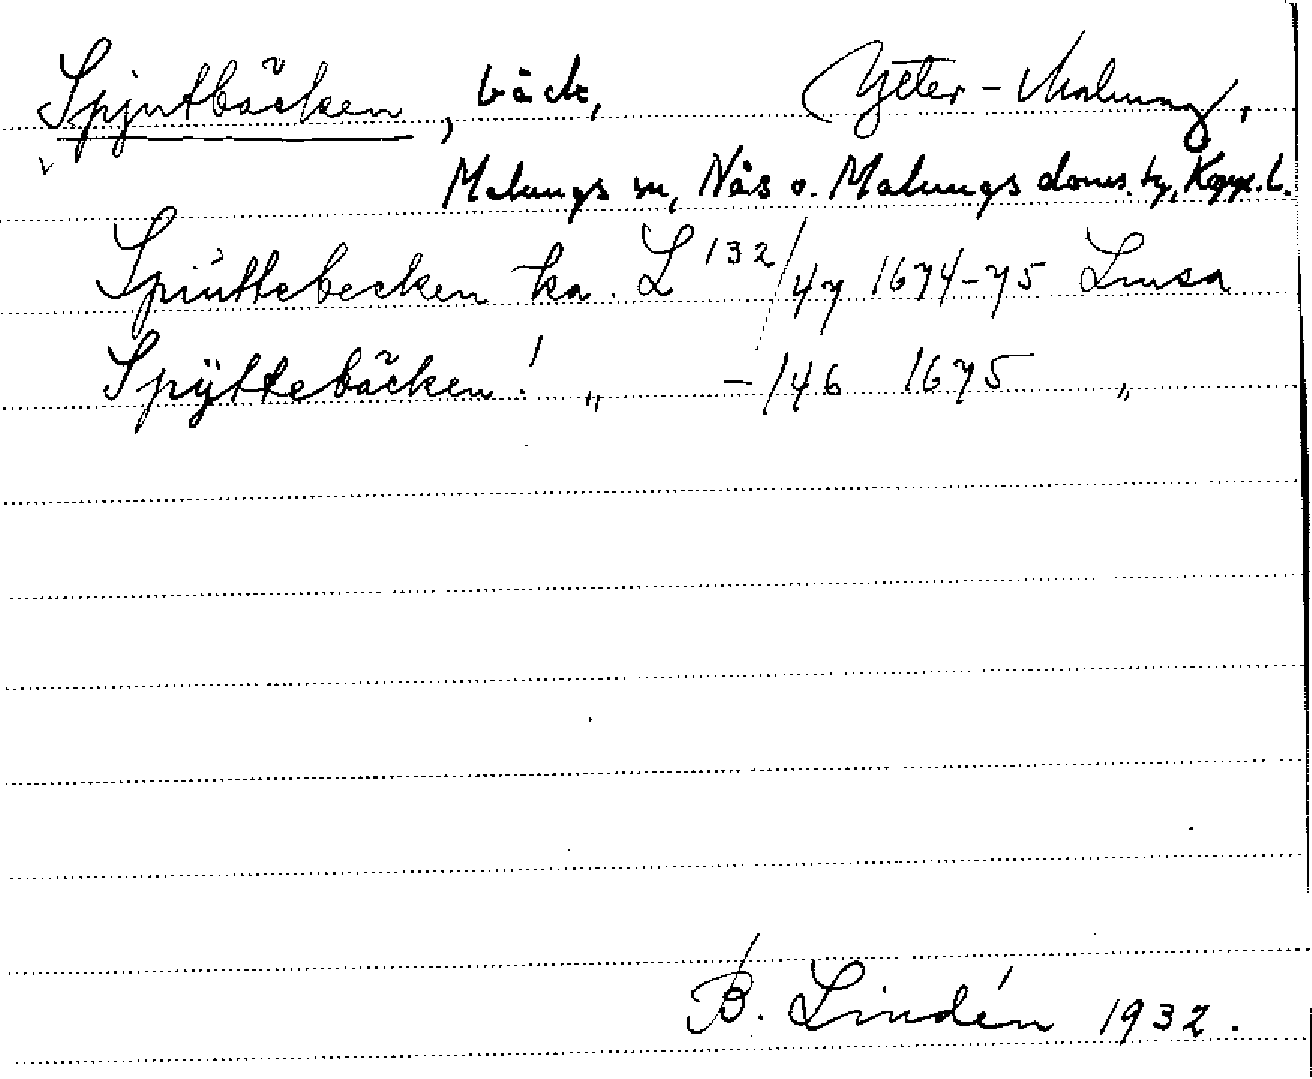 Spjutbäcken, bäck, Ytter-Malung,
Malungs sn, Näs o. Malungs doms. tg, Kopp. l.
Spiuttebecken ka. L 132/47 1674-75 Lmsa
Spÿttebäcken! „ -/46 1675 „
B. Lindén 1932.